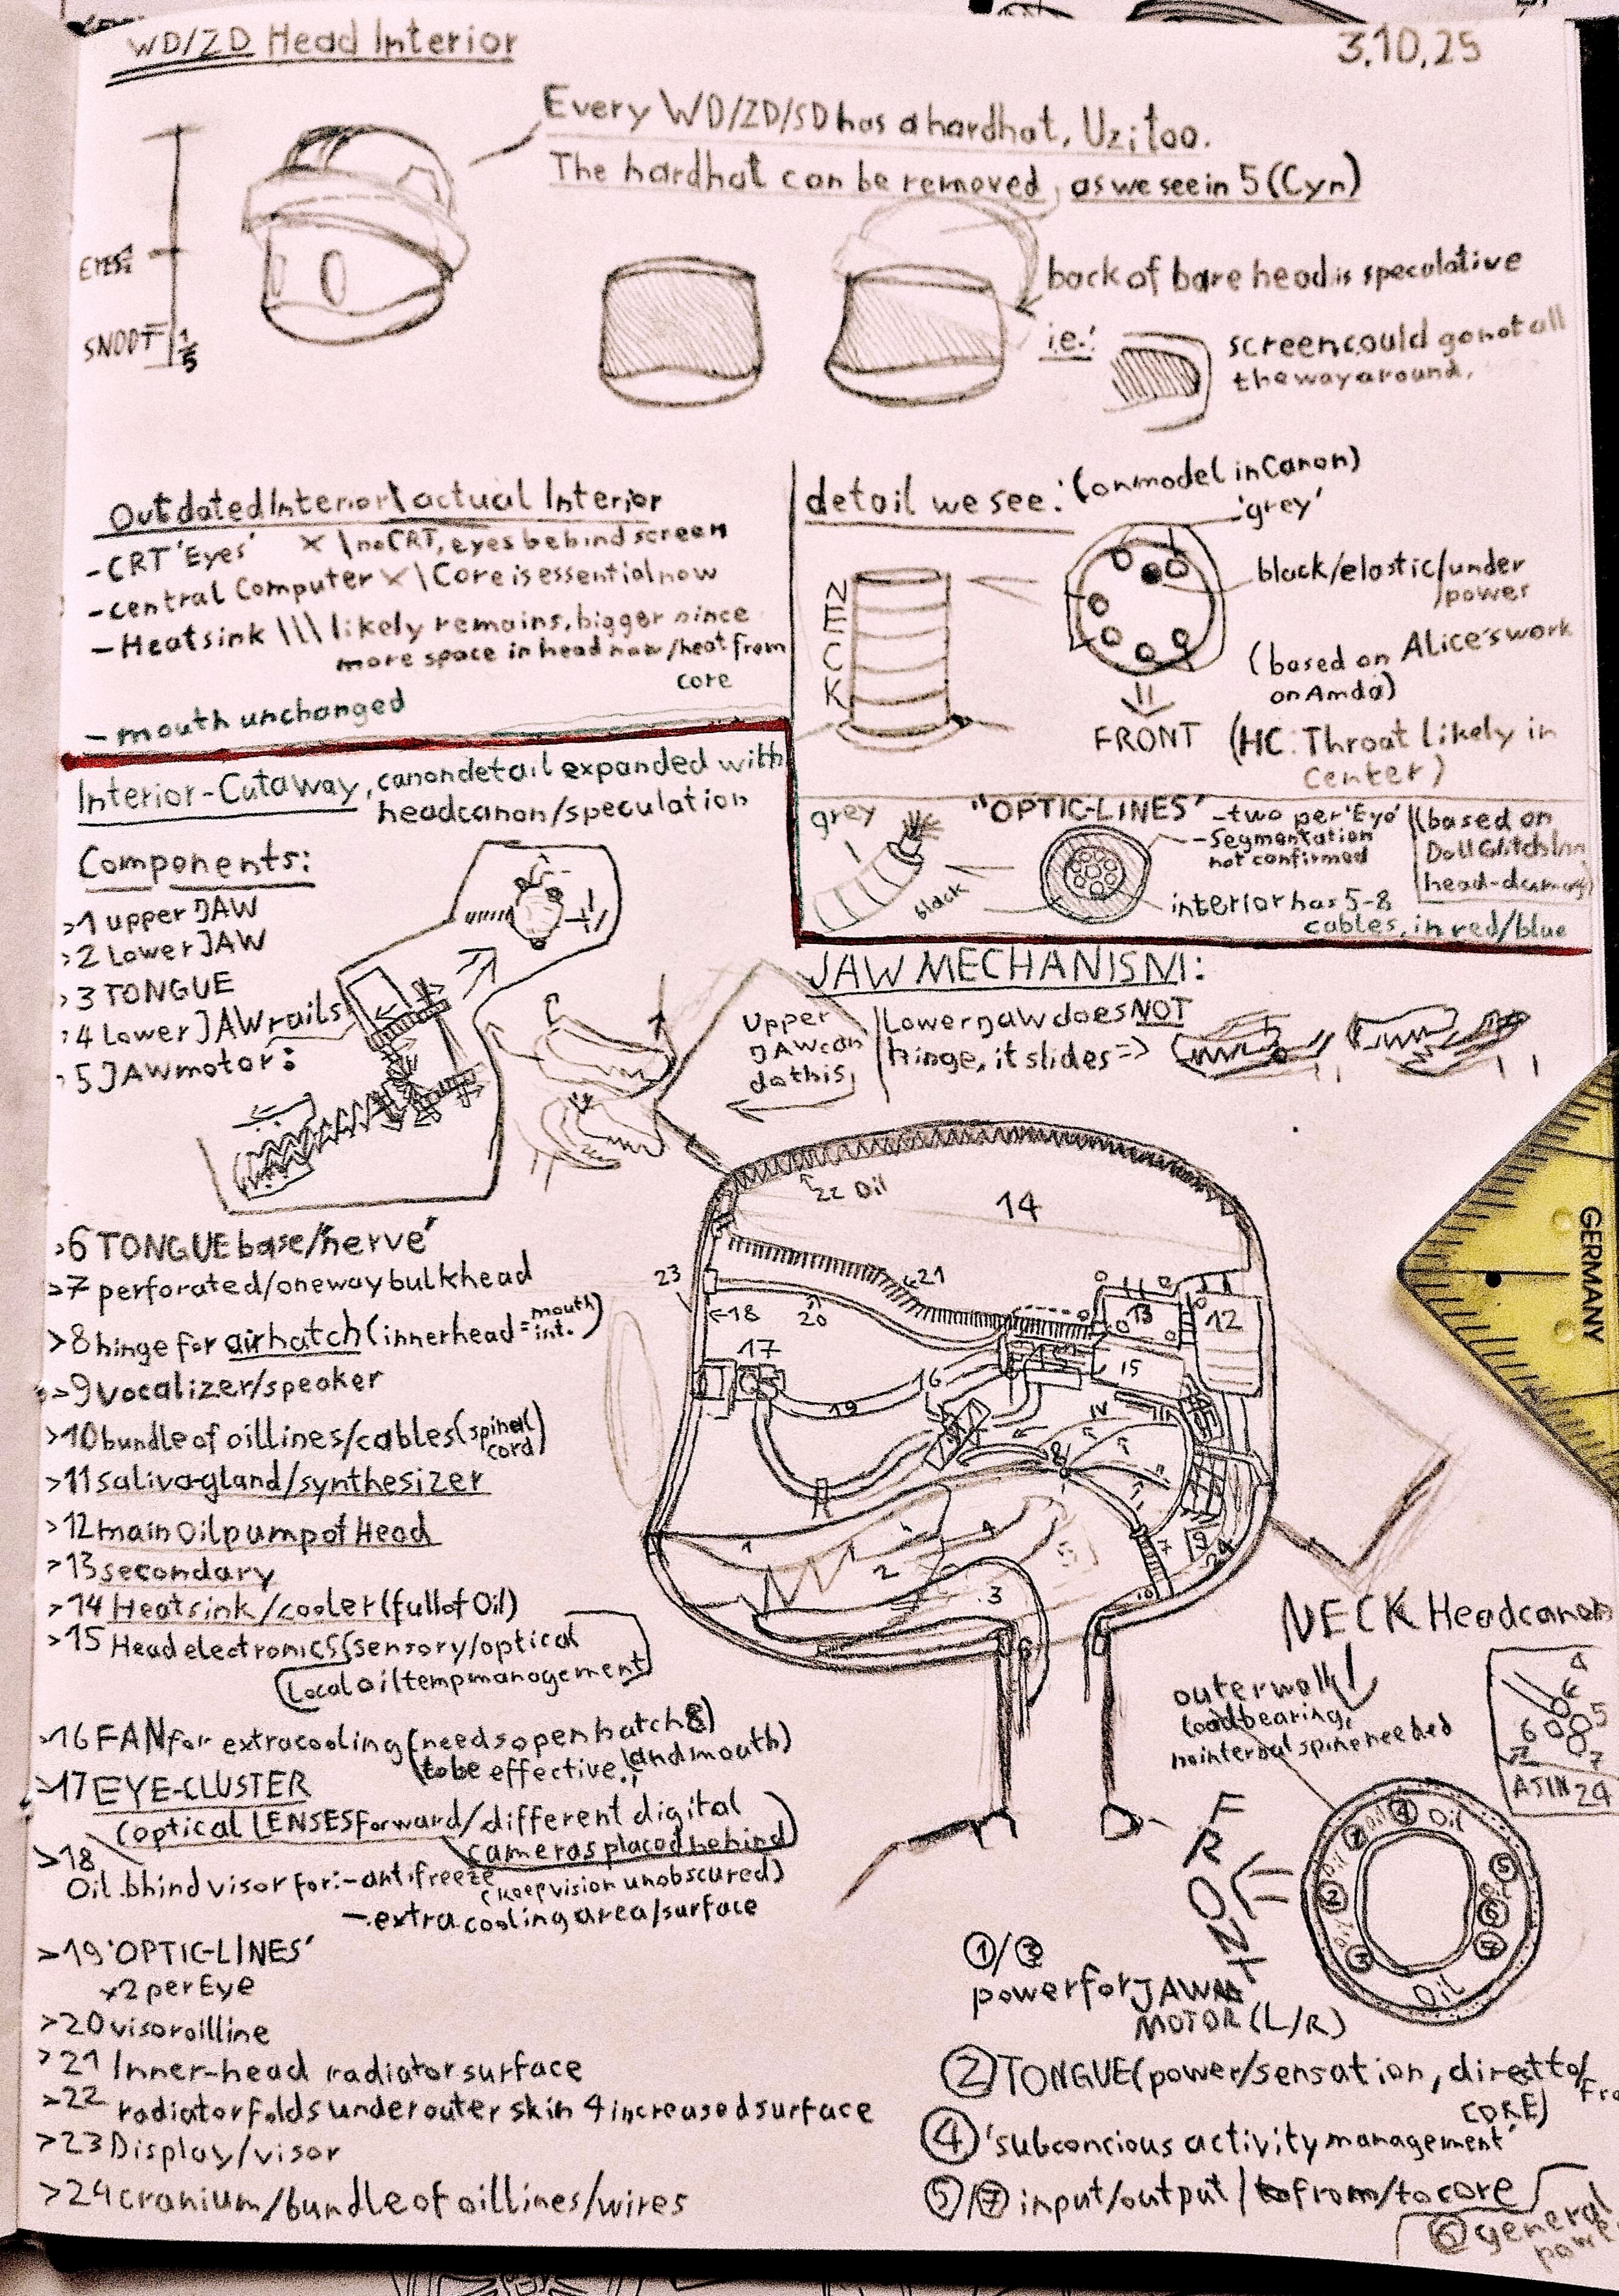 WD/ZD Head Interior
3.10.25
Every WD/ZD/SD has a hardhat, Uzi too.
The hardhat can be removed, as we see in 5 (Cyn)
EYES:
SNOOT= 1/5
back of bare head is speculative
i.e.:
screen could go not all
the way around.
Outdated Interior\actual Interior
-CRT 'Eyes' X \no CRT, eyes behind screen
-central Computer X \Core is essential now
-Heatsink \\\ likely remains, bigger since
more space in head now/heat from
core
- mouth unchanged
detail we see: (on model in Canon)
'grey'
NECK
black/elastic/under
/power
(based on Alice's work
on Amda)
FRONT
(HC: Throat likely in
Center)
grey
black
"OPTIC-LINES" -two per 'Eye'
-Segmentation
not confirmed
(based on
Doll Glitch
head-damag)
interior has 5-8
cables, in red/blue
Interior-Cutaway, canon detail expanded with
headcanon/speculation
Components:
>1 upper JAW
>2 Lower JAW
>3 TONGUE
>4 Lower JAW rails
>5 JAW motor:
JAW MECHANISM:
Upper
JAW can
do this,
Lower Jaw does NOT
hinge, it slides =>
GERMANY
>6 TONGUE base/'nerve'
>7 perforated/oneway bulkhead
>8 hinge for air hatch (inner head = mouth int.)
>9 vocalizer/speaker
>10 bundle of oil lines/cables (spinal cord)
>11 saliva-gland/synthesizer
>12 main Oil pump of Head
>13 secondary
>14 Heatsink/cooler (full of Oil)
>15 Head electronics (sensory/optical
(Local oil temp management)
>16 FAN for extra cooling (needs open hatch 8)
(to be effective, (and mouth)
>17 EYE-CLUSTER
(optical LENSES forward/different digital
cameras placed behind)
>18
Oil bhind visor for: -antifreeze
(keep vision unobscured)
-extra cooling area/surface
>19 'OPTIC-LINES'
x2 per Eye
>20 visor oil line
>21 Inner-head radiator surface
>22 radiator folds under outer skin 4 increased surface
>23 Display/visor
>24 cranium/bundle of oil lines/wires
22 Oil
14
21
23
18
20
13
12
17
16
15
19
8
1
2
3
4
5
6
7
9
10
24
NECK Headcanon
outer wall
load bearing,
no internal spine needed
4
5
6
7
FRONT
Oil
Oil
①/③
power for JAW
MOTOR (L/R)
② TONGUE (power/sensation, direct to/
CORE)
④ 'subconcious activity management'
⑤/⑦ input/output / from/to core
⑥ general